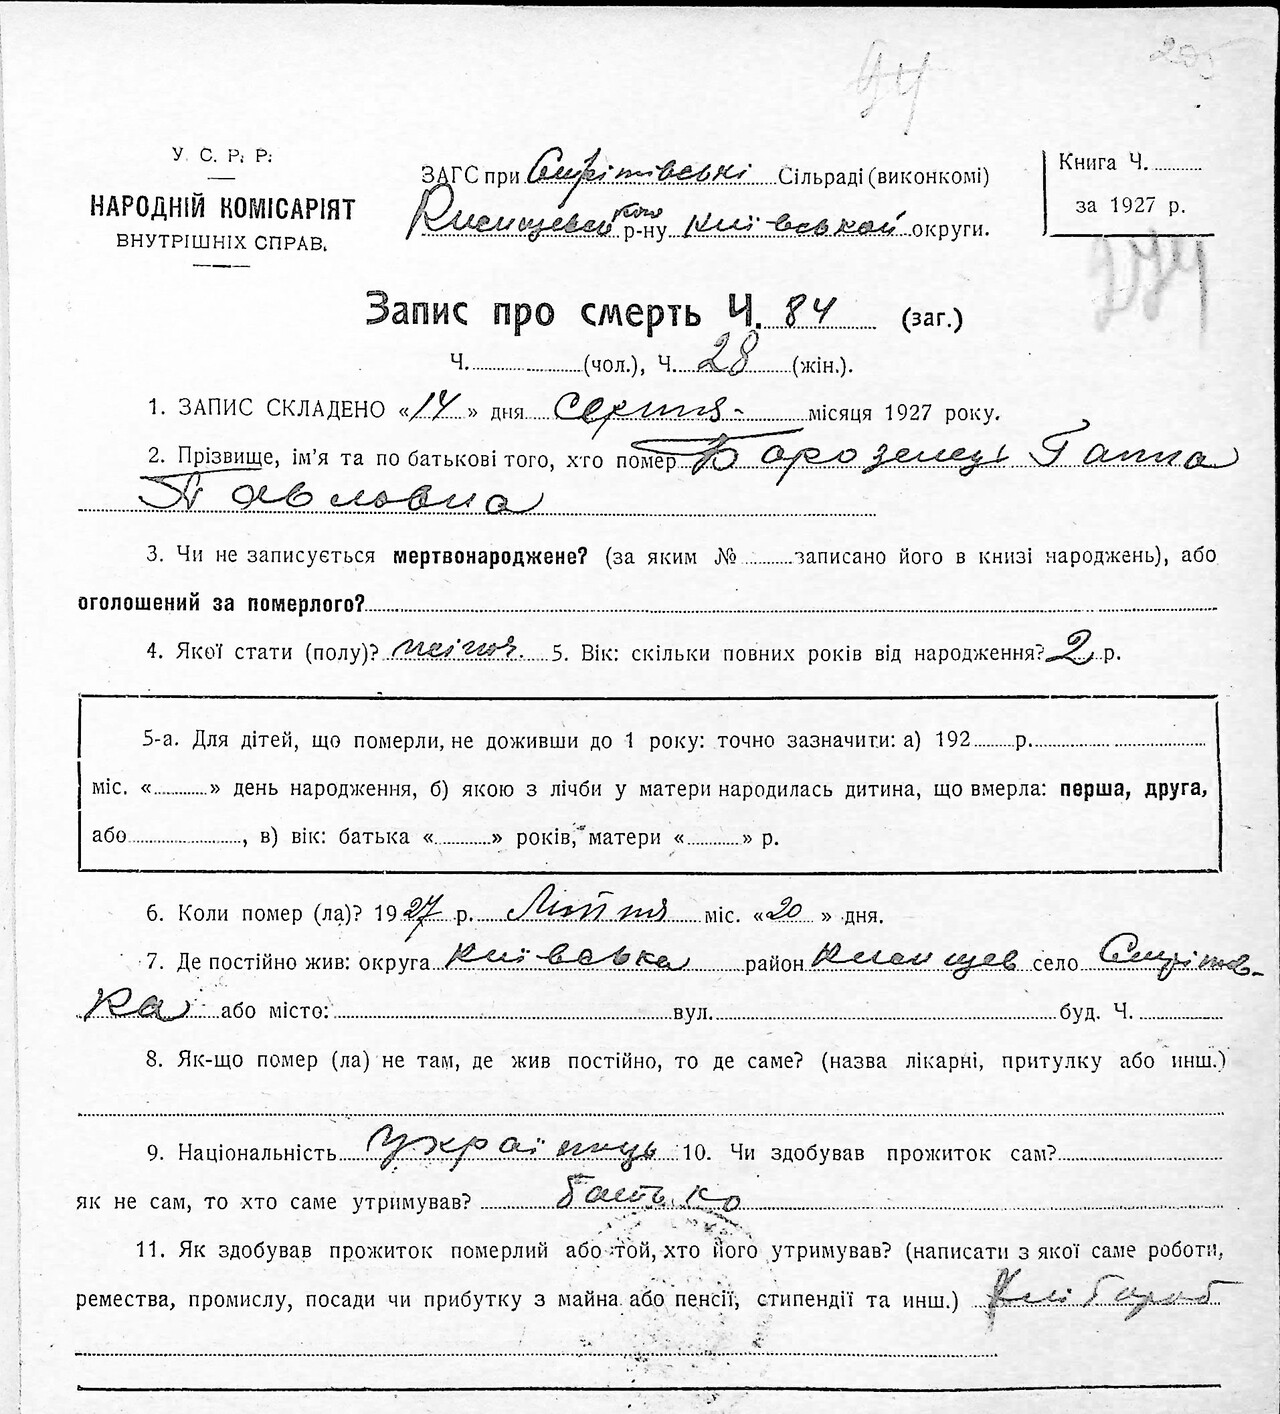 94
205
У. С. Р. Р.
НАРОДНІЙ КОМІСАРІЯТ
ВНУТРІШНІХ СПРАВ.
ЗАГС при Сирітівські Сільраді (виконкомі)
р-ну Київськой округи.
Книга Ч.
за 1927 р.
274
Запис про смерть Ч. 84 (заг.)
Ч. (чол.), Ч. 28 (жін.).
1. ЗАПИС СКЛАДЕНО «14» дня Серпня місяця 1927 року.
2. Прізвище, ім'я та по батькові того, хто помер Борозенец Ганна
Павловна
3. Чи не записується мертвонароджене? (за яким № записано його в книзі народжень), або
оголошений за померлого?
4. Якої стати (полу)? жіноч. 5. Вік: скільки повних років від народження? 2 р.
5-а. Для дітей, що померли, не доживши до 1 року: точно зазначити: а) 192 р.
міс. « » день народження, б) якою з лічби у матери народилась дитина, що вмерла: перша, друга,
або , в) вік: батька « » років, матери « » р.
6. Коли помер (ла)? 1927 р. Літня міс. «20» дня.
7. Де постійно жив: округа Київська район село Сирітов-
ка або місто: вул. буд. Ч.
8. Як-що помер (ла) не там, де жив постійно, то де саме? (назва лікарні, притулку або инш.)
9. Національність Українць 10. Чи здобував прожиток сам?
як не сам, то хто саме утримував? батько
11. Як здобував прожиток померлий або той, хто його утримував? (написати з якої саме роботи,
ремества, промислу, посади чи прибутку з майна або пенсії, стипендії та инш.) Хлібороб